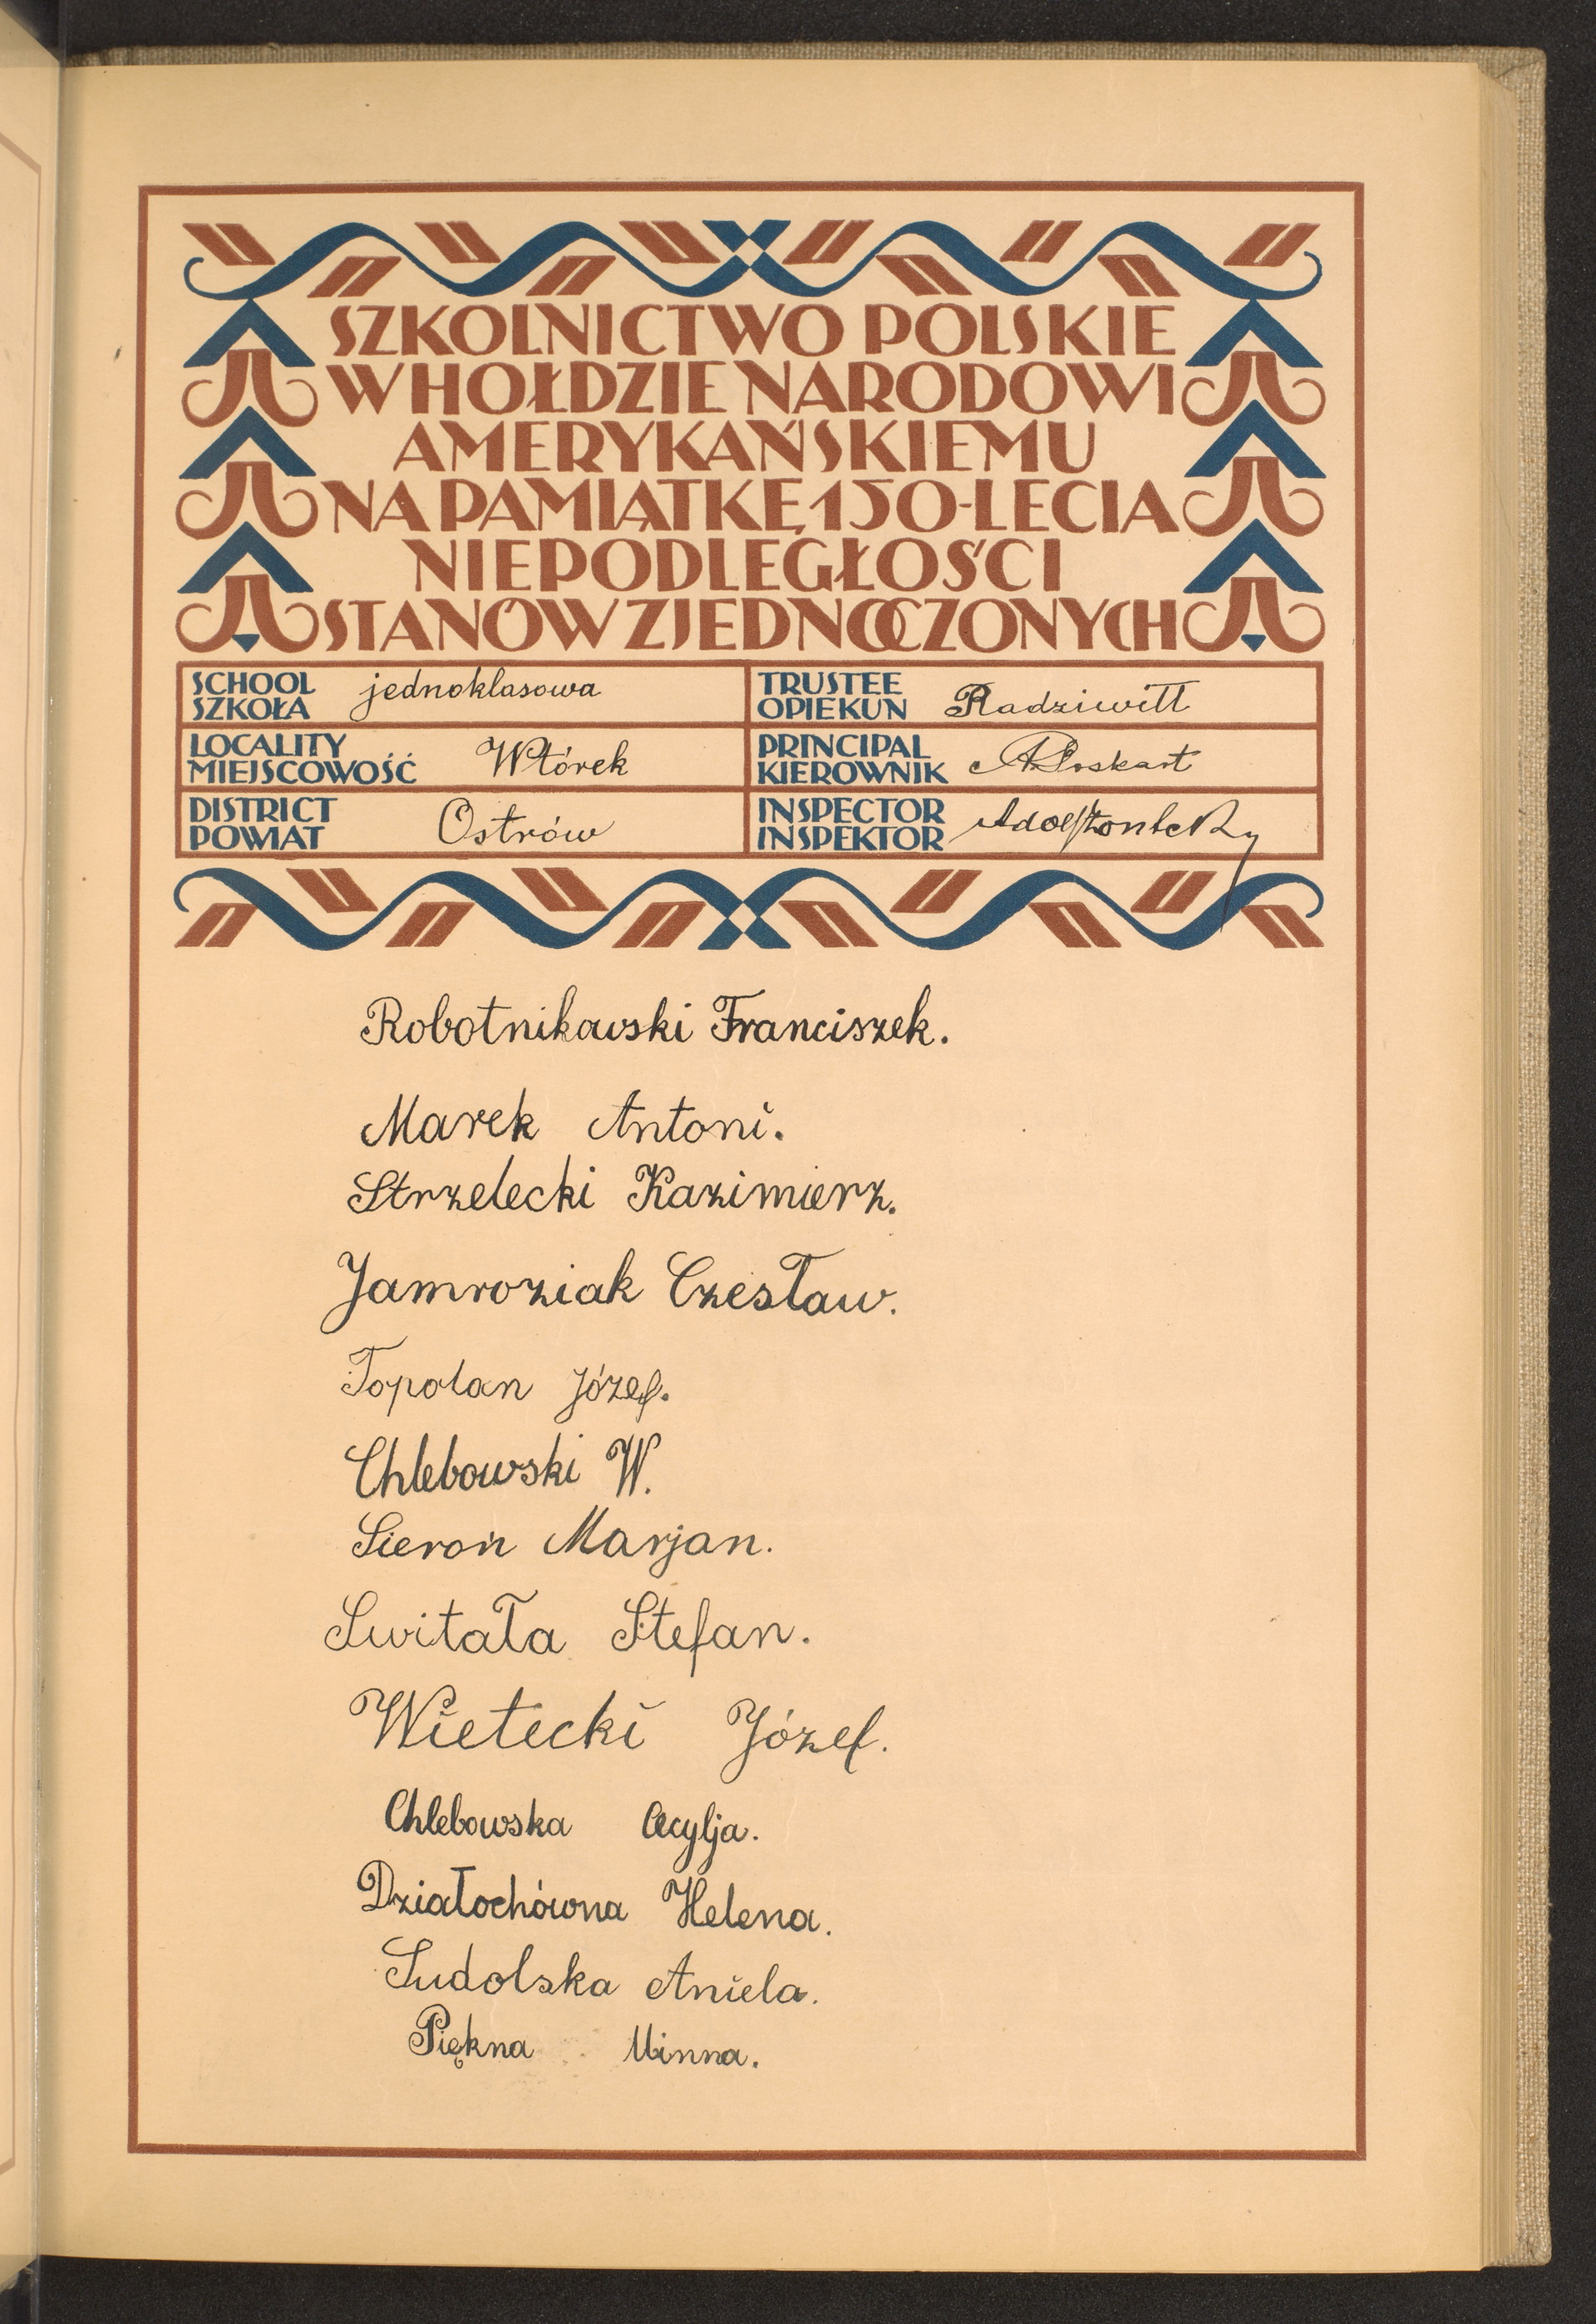 SZKOLNICTWO POLSKIE
W HOŁDZIE NARODOWI
AMERYKAŃSKIEMU
NA PAMIĄTKĘ 150-LECIA
NIEPODLEGŁOŚCI
STANÓW ZJEDNOCZONYCH
SCHOOL
SZKOŁA jednoklasowa
TRUSTEE
OPIEKUN Radziwiłł
LOCALITY
MIEJSCOWOŚĆ Wtórek
PRINCIPAL
KIEROWNIK
DISTRICT
POWIAT Ostrów
INSPECTOR
INSPEKTOR
Robotnikowski Franciszek.
Marek Antoni.
Strzelecki Kazimierz.
Jamroziak Czesław.
Topolan Józef.
Chlebowski W.
Sieroń Marjan.
Switała Stefan.
Wietecki Józef.
Chlebowska Cecylja.
Działochówna Helena.
Sudolska Aniela.
Piękna Minna.